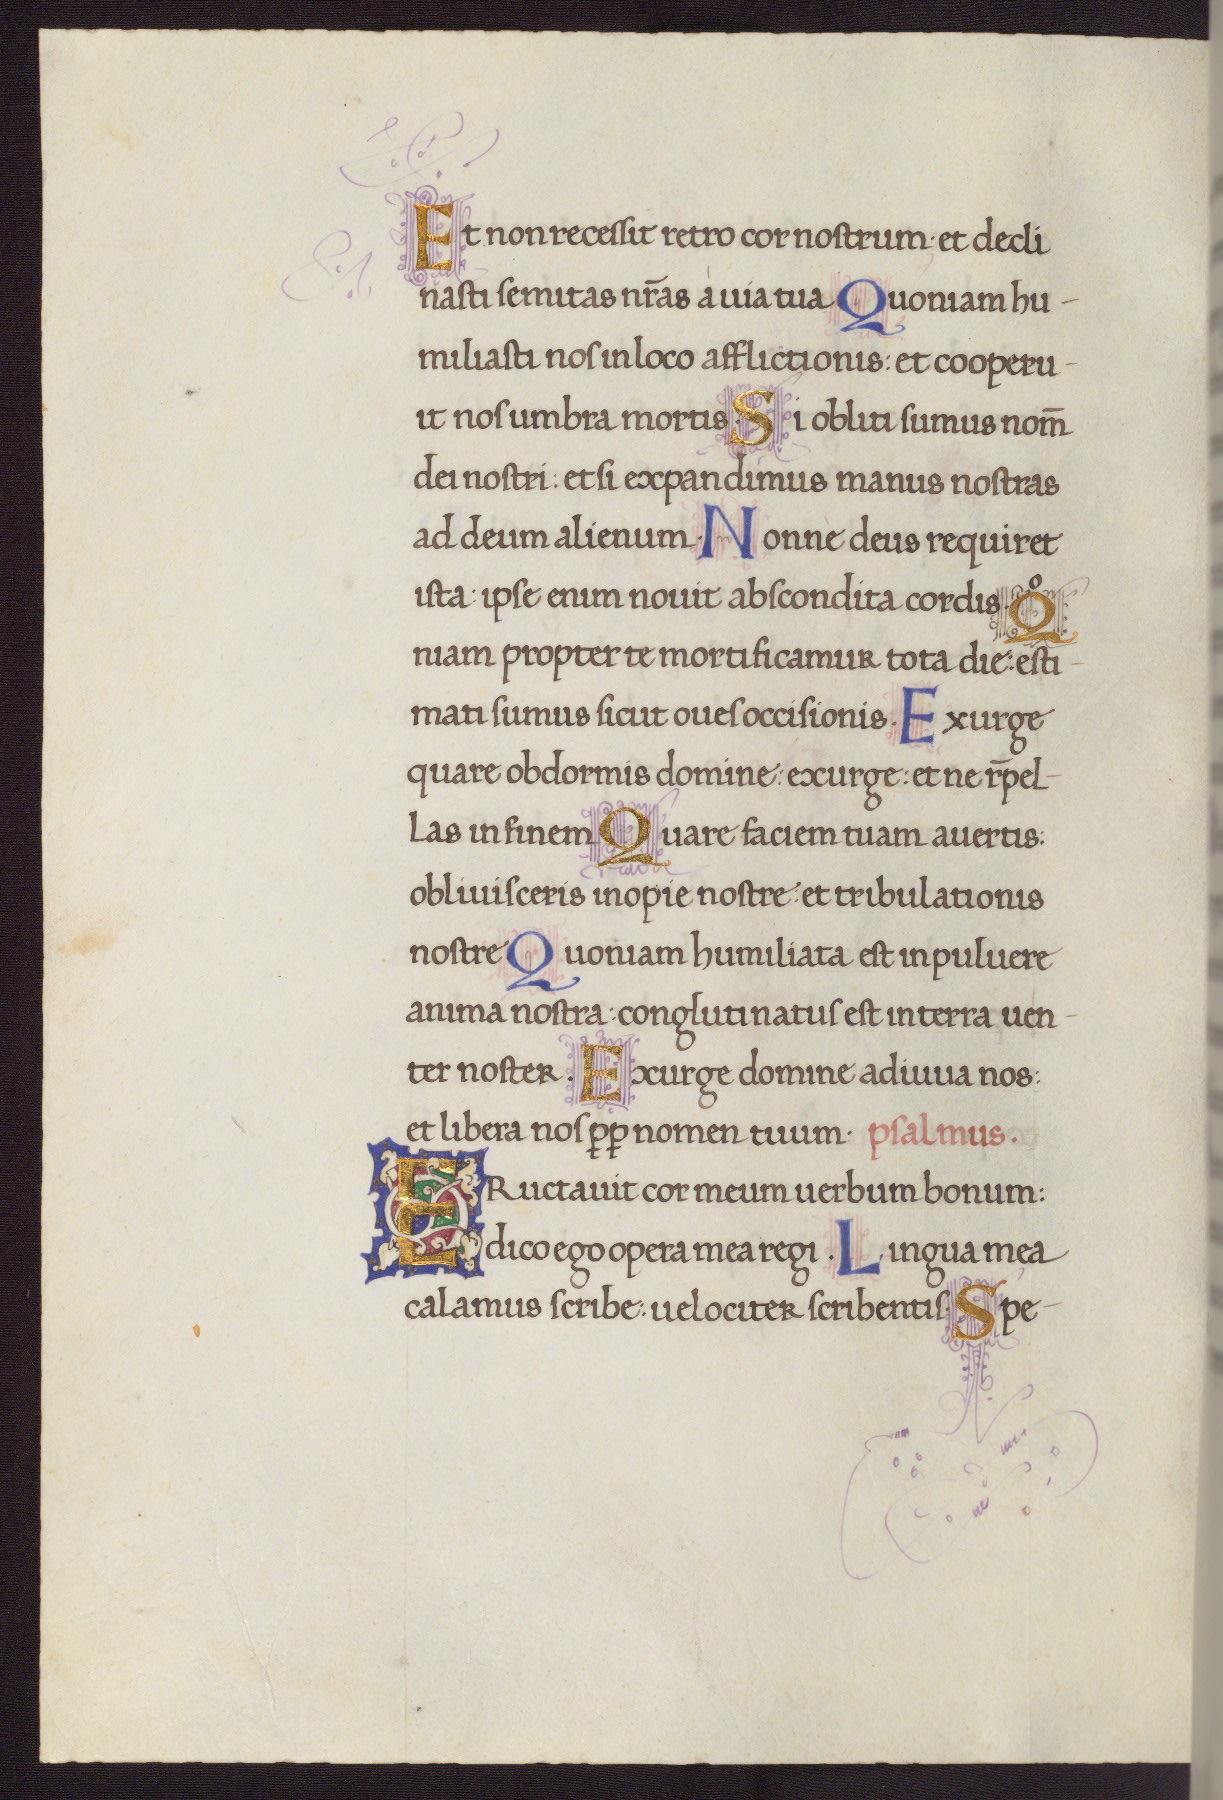 Et non recessit retro cor nostrum· et decli
nasti semitas nr̄as a uia tua Quoniam hu-
miliasti nos in loco afflictionis: et cooperu-
it nos umbra mortis. Si obliti sumus nom̄
dei nostri: et si expandimus manus nostras
ad deum alienum. Nonne deus requiret
ista: ipse enim nouit abscondita cordis. Qͦ
niam propter te mortificamur tota die: esti-
mati sumus sicut oues occisionis. Exurge
quare obdormis domine: exurge: et ne r̄pel-
las in finem Quare faciem tuam auertis:
obliuisceris inopie nostre: et tribulationis
nostre Quoniam humiliata est in puluere
anima nostra: conglutinatus est in terra uen-
ter noster. Exurge domine adiuua nos:
et libera nos ꝓꝑ nomen tuum· psalmus.
ERuctauit cor meum uerbum bonum:
dico ego opera mea regi. Lingua mea
calamus scribe: uelociter scribentis. Spe-